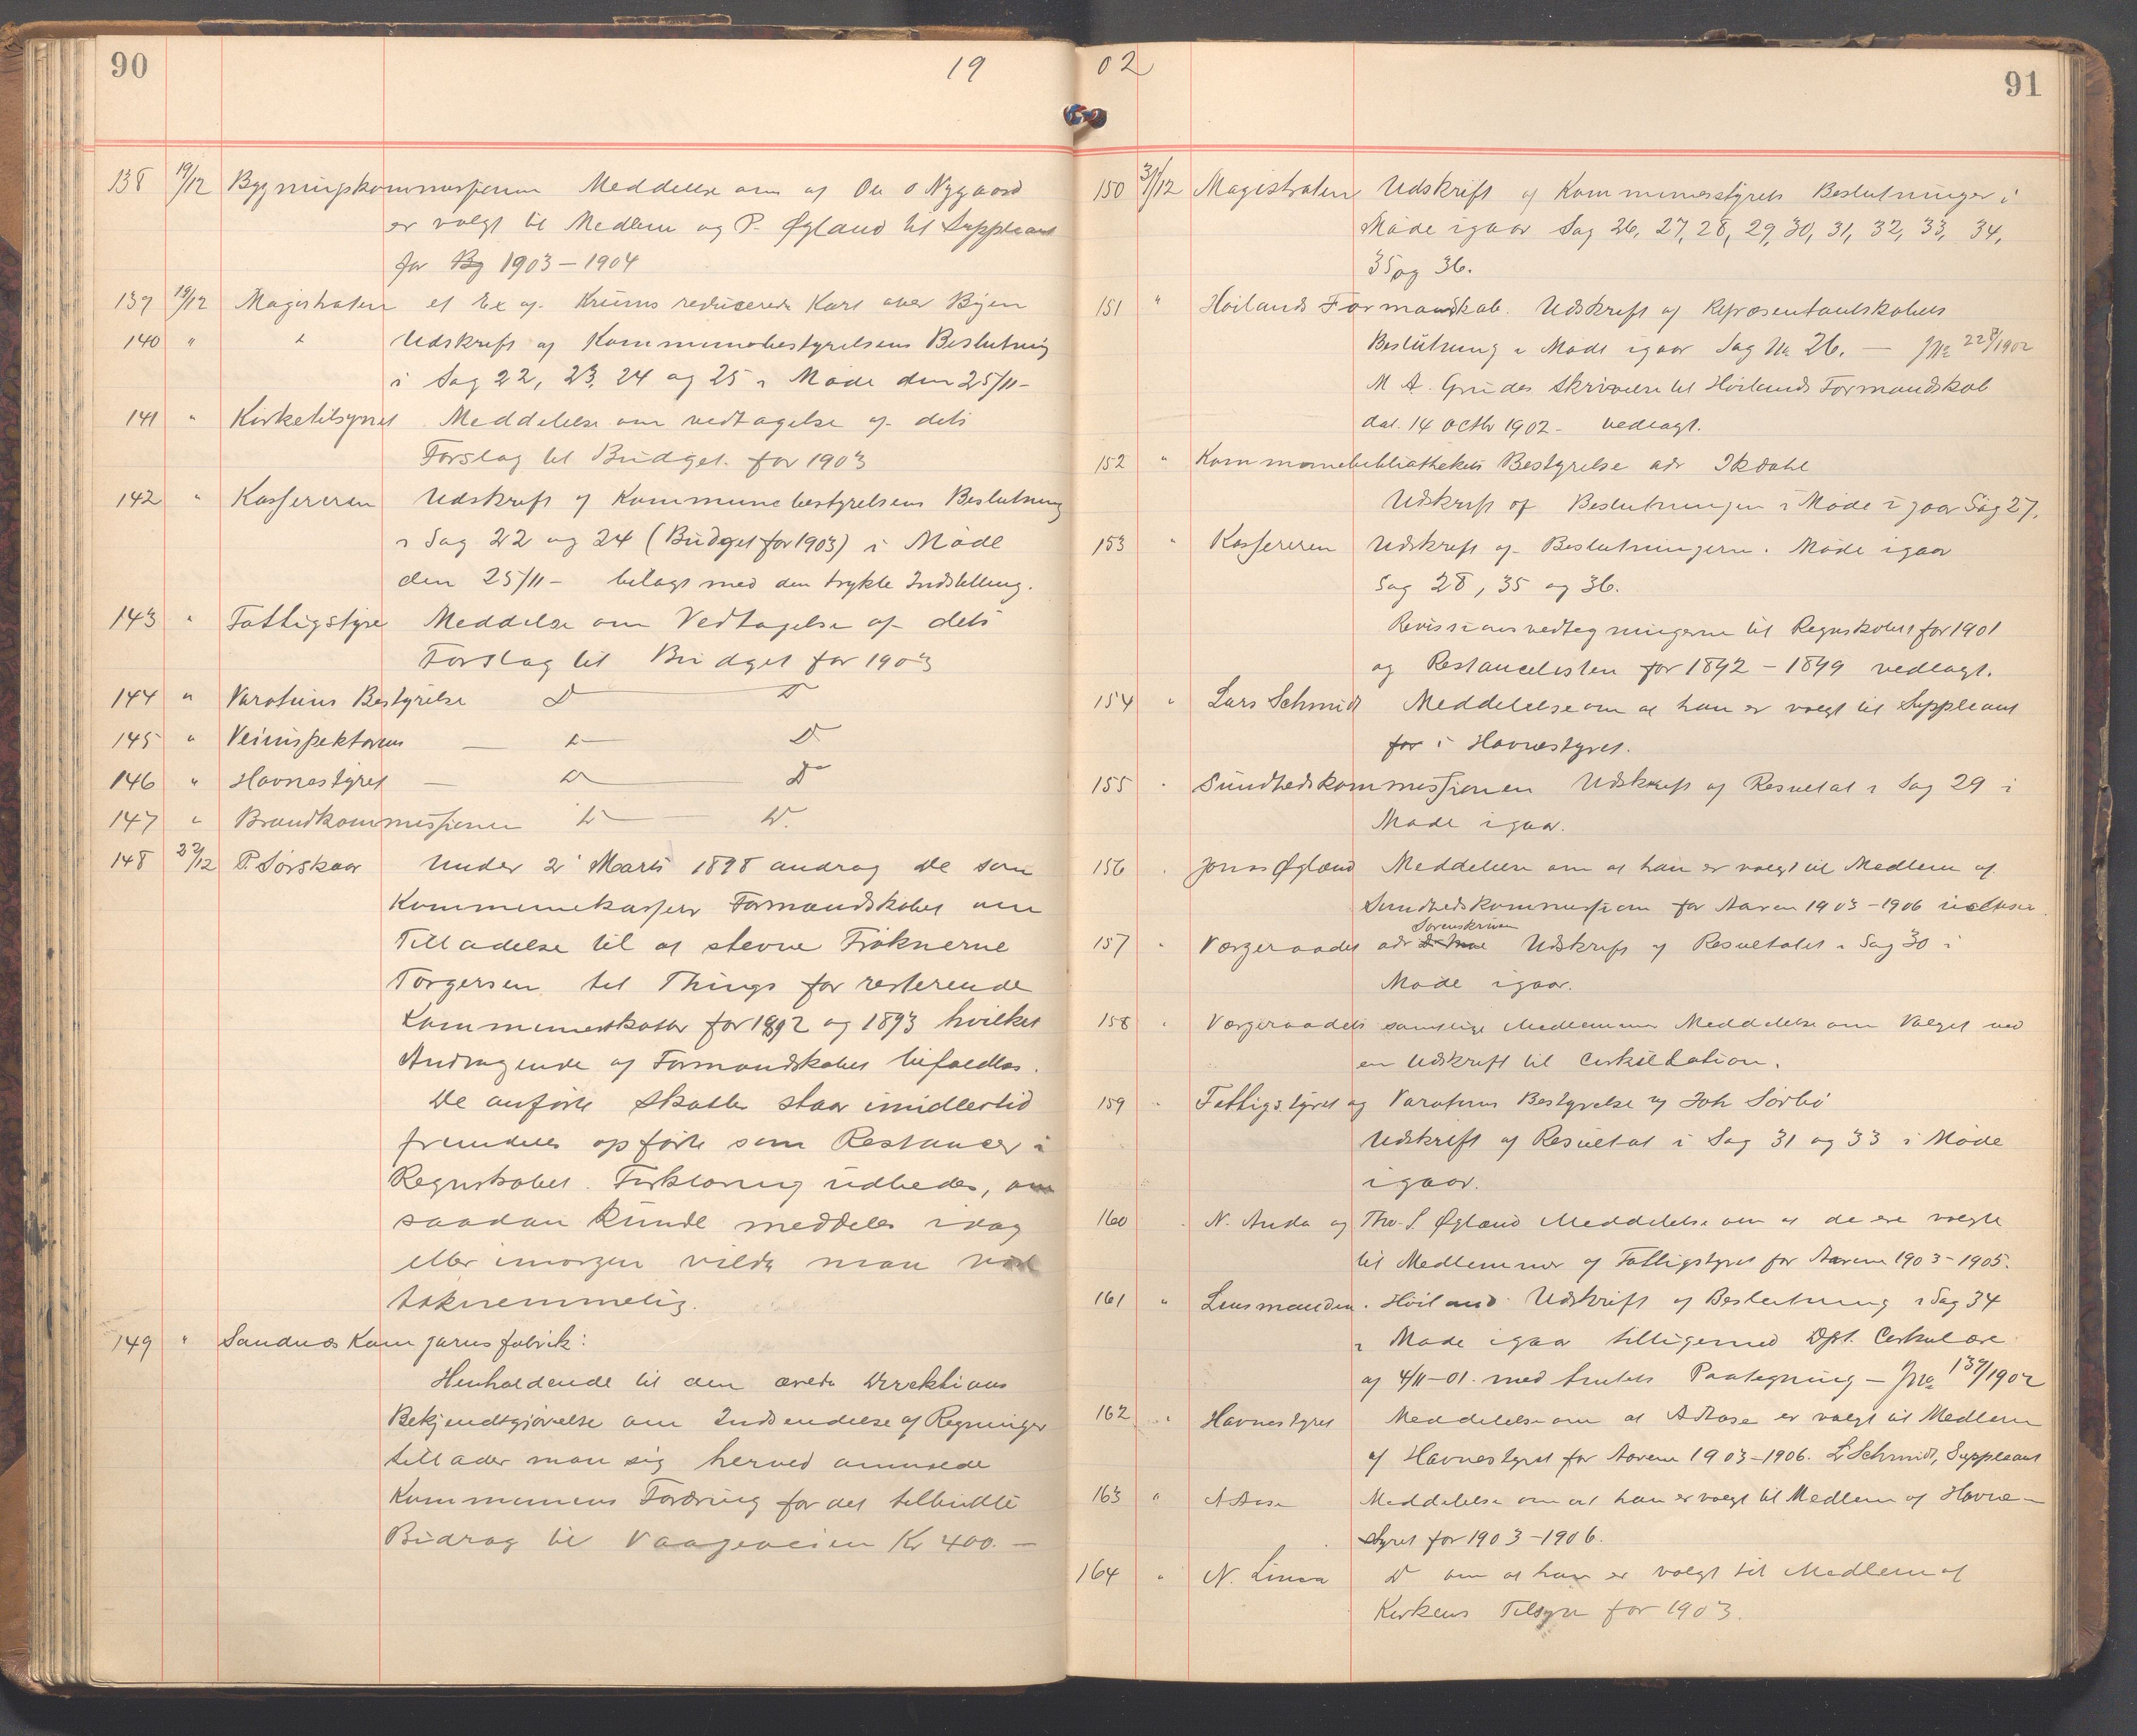 90
19
138 19/12 Bygningskommissionen Meddelelse om at Ole O Nygaard
er valgt til Medlem og P. Øgland til Suppleant
for By 1903–1904
139 19/12 Magistraten et Ex af Krums reducerede Kart over Byen
140 " " Udskrift af Kommunebestyrelsens Beslutning
i Sag 22, 23, 24 og 25 i Møde den 25/11–
141 " Kirketilsynet Meddelelse om vedtagelse af dets
Forslag til Budget for 1903
142 " Kassereren Udskrift af Kommunebestyrelsens Beslutning
i Sag 22 og 24 (Budget for 1903) i Møde
den 25/11– bilagt med den trykte Indstilling.
143 " Fattigstyre Meddelse om Vedtagelse af dets
Forslag til Budget for 1903
144 " Varatuns Bestyrelse D — D
145 " Veiinspektøren — D — D
146 " Havnestyret — D — D
147 " Brandkommissionen D — D.
148 22/12 P. Sørskaar Under 2 Marts 1898 androg De som
Kommunekasserer Formandskabet om
Tilladelse til at stevne Frøknerne
Torgersen til Things for resterende
Kommuneskatter for 1892 og 1893 hvilket
Andragende af Formandskabet bifaldtes.
De anførte Skatter staar imidlertid
fremdeles opførte som Restancer i
Regnskabet. Forklaring udbedes, om
saadan kunde meddeles idag
eller imorgen vilde man
taknemmelig.
149 " Sandnæs Kamgarnsfabrik:
Henholdende til den ærede Direktions
Bekjendtgjørelse om Indsendelse af Regninger
tillader man sig herved anmelde
Kommunens Fordring for det tilbudte
Bidrag til Vaageveien Kr 400.—
02
91
150 31/12 Magistraten Udskrift af Kommunestyrets Beslutninger i
Møde igaar Sag 26, 27, 28, 29, 30, 31, 32, 33, 34,
35 og 36.
151 " Høilands Formandskab. Udskrift af Repræsentantskabets
Beslutning i Møde igaar Sag No 26. — JNo 228/1902
M A. Grudes Skrivelse til Høilands Formandskab
dat. 14 octbr 1902 – vedlagt.
152 " Kommunebibliothekets Bestyrelse adr Ikdahl
Udskrift af Beslutningen i Møde igaar Sag 27.
153 " Kassereren Udskrift af Beslutningerne i Møde igaar
Sag 28, 35 og 36.
Revisionsvedtegningerne til Regnskabet for 1901
og Restancelisten for 1892–1899 vedlagt.
154 " Lars Schmidt Meddelelse om at han er valgt til Suppleant
for i Havnestyret.
155 " Sundhedskommissionen Udskrift af Resultat i Sag 29 i
Møde igaar.
156 " Jonas Øgland Meddelelse om at han er valgt til Medlem af
Sundhedskommission for Aarene 1903–1906 inclusive.
Sorenskriver
157 " Værgeraadet adr Udskrift af Resultatet i Sag 30 i
Møde igaar.
158 " Værgeraadets samtlige Medlemmer Meddelelse om Valget ved
en Udskrift til Cirkulation.
159 " Fattigstyret og Varatuns Bestyrelse og Joh Sørbø
Udskrift af Resultat i Sag 31 og 33 i Møde
igaar.
160 " N. Anda og Thv. S. Øgland Meddelelse om at de ere valgte
til Medlemmer af Fattigstyret for Aarene 1903–1905.
161 " Lensmanden i Høiland Udskrift af Beslutning i Sag 34
i Møde igaar tilligemed Dpt. Cirkulære
af 4/11–01. med Amtets Paategning – JNo 139/1902
162 " Havnestyret Meddelelse om at A Aase er valgt til Medlem
af Havnestyret for Aarene 1903–1906. L Schmidt, Suppleant
163 " A Aase Meddelelse om at han er valgt til Medlem af Havne–
styret for 1903–1906.
164 " N. Lima D om at han er valgt til Medlem af
Kirkens Tilsyn for 1903.